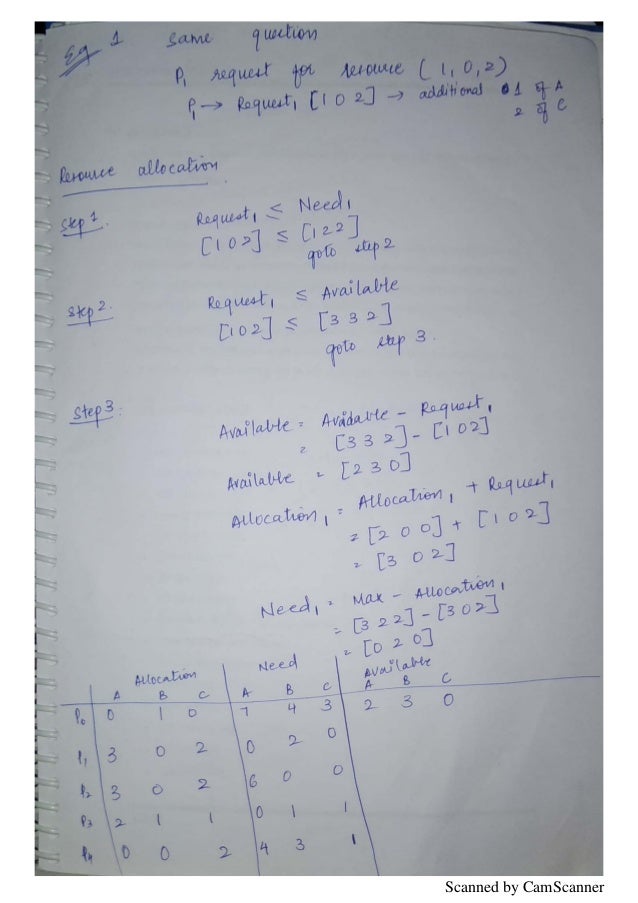 Eg 1 same question
P1 request for resource (1,0,2)
P1 → Request1 [1 0 2] → additional 1 of A
2 of C
Resource allocation
Step 1. Request1 ≤ Need1
[1 0 2] ≤ [1 2 2]
goto step 2
Step 2. Request1 ≤ Available
[1 0 2] ≤ [3 3 2]
goto step 3.
Step 3: Available = Available - Request1
= [3 3 2] - [1 0 2]
Available = [2 3 0]
Allocation1 = Allocation1 + Request1
= [2 0 0] + [1 0 2]
= [3 0 2]
Need1 = Max - Allocation1
= [3 2 2] - [3 0 2]
= [0 2 0]
Allocation Need Available
A B C A B C A B C
P0 0 1 0 7 4 3 2 3 0
P1 3 0 2 0 2 0
P2 3 0 2 6 0 0
P3 2 1 1 0 1 1
P4 0 0 2 4 3 1
Scanned by CamScanner